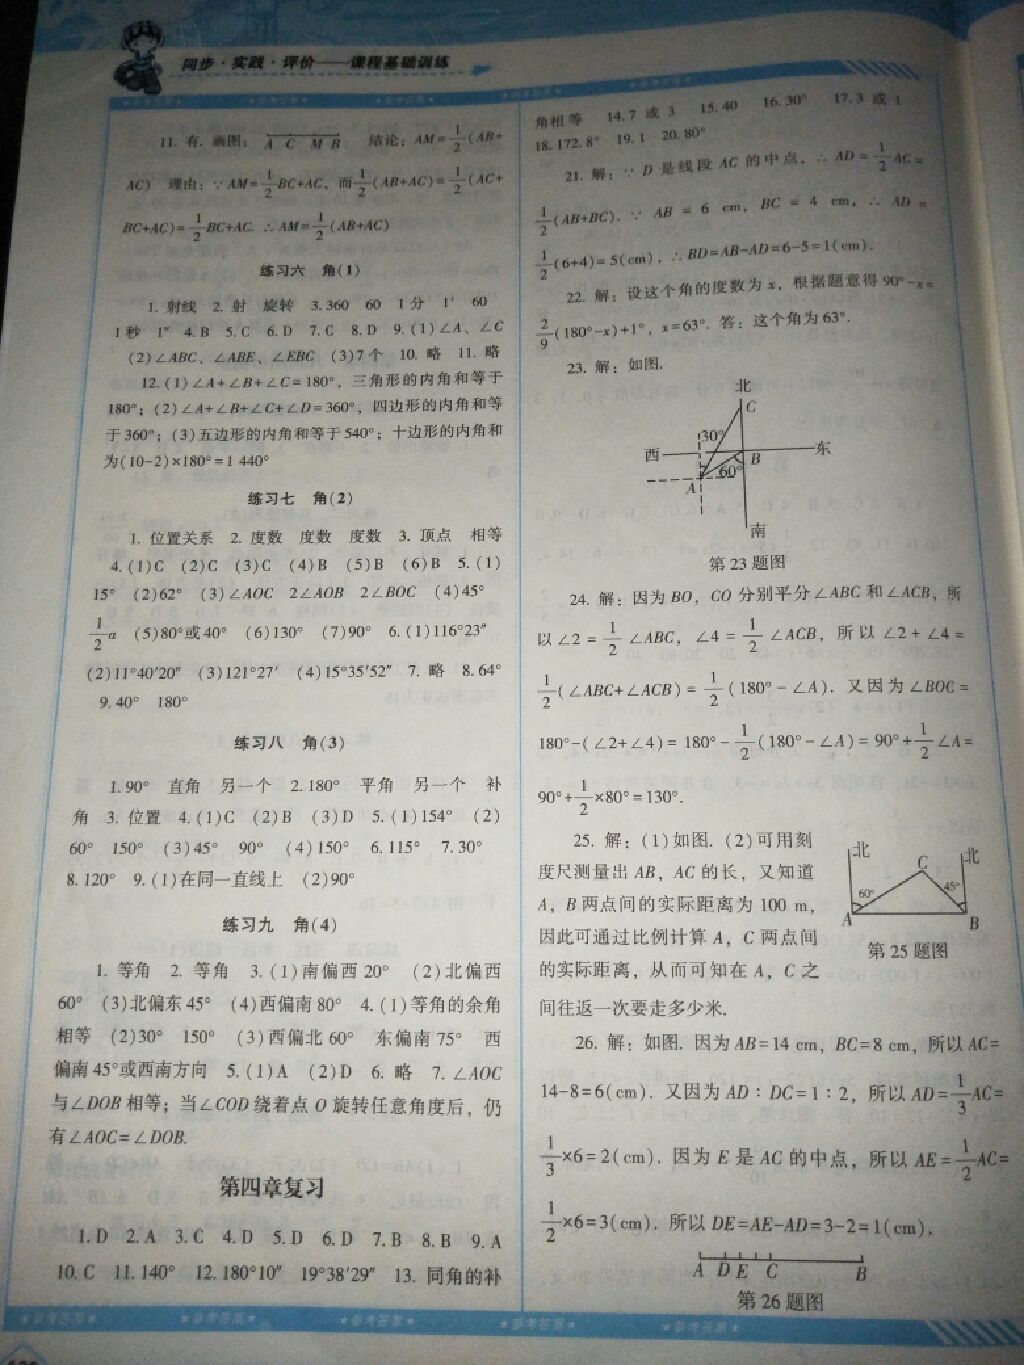 同步·实践·评价——课程基础训练
11. 有. 画图: A C M B 结论: AM=1/2(AB+
AC) 理由: ∵AM=1/2BC+AC, 而1/2(AB+AC)=1/2(AC+
BC+AC)=1/2BC+AC. ∴AM=1/2(AB+AC)
练习六 角(1)
1. 射线 2. 射 旋转 3. 360 60 1分 1′ 60
1秒 1″ 4. B 5. C 6. D 7. C 8. D 9. (1)∠A、∠C
(2)∠ABC、∠ABE、∠EBC (3)7个 10. 略 11. 略
12. (1)∠A+∠B+∠C=180°, 三角形的内角和等于
180°; (2)∠A+∠B+∠C+∠D=360°, 四边形的内角和等
于360°; (3)五边形的内角和等于540°; 十边形的内角和
为(10-2)×180°=1 440°
练习七 角(2)
1. 位置关系 2. 度数 度数 度数 3. 顶点 相等
4. (1)C (2)C (3)C (4)B (5)B (6)B 5. (1)
15° (2)62° (3)∠AOC 2∠AOB 2∠BOC (4)45°
1/2 α (5)80°或40° (6)130° (7)90° 6. (1)116°23″
(2)11°40′20″ (3)121°27′ (4)15°35′52″ 7. 略 8. 64°
9. 40° 180°
练习八 角(3)
1. 90° 直角 另一个 2. 180° 平角 另一个 补
角 3. 位置 4. (1)C (2)B (3)D 5. (1)154° (2)
60° 150° (3)45° 90° (4)150° 6. 115° 7. 30°
8. 120° 9. (1)在同一直线上 (2)90°
练习九 角(4)
1. 等角 2. 等角 3. (1)南偏西20° (2)北偏西
60° (3)北偏东45° (4)西偏南80° 4. (1)等角的余角
相等 (2)30° 150° (3)西偏北60° 东偏南75° 西
偏南45°或西南方向 5. (1)A (2)D 6. 略 7. ∠AOC
与∠DOB相等; 当∠COD绕着点O旋转任意角度后, 仍
有∠AOC=∠DOB.
第四章复习
1. D 2. A 3. C 4. D 5. D 6. D 7. B 8. B 9. A
10. C 11. 140° 12. 180°10″ 19°38′29″ 13. 同角的补
角相等 14. 7或3 15. 40 16. 30° 17. 3或1
18. 172.8° 19. 1 20. 80°
21. 解: ∵D是线段AC的中点, ∴AD=1/2AC=
1/2(AB+BC). ∵AB=6 cm, BC=4 cm, ∴AD=
1/2(6+4)=5(cm), ∴BD=AB-AD=6-5=1(cm).
22. 解: 设这个角的度数为x, 根据题意得90°-x=
2/9(180°-x)+1°, x=63°. 答: 这个角为63°.
23. 解: 如图.
北
C
30°
西 东
B
60°
A
南
第23题图
24. 解: 因为BO, CO分别平分∠ABC和∠ACB, 所
以∠2=1/2∠ABC, ∠4=1/2∠ACB, 所以∠2+∠4=
1/2(∠ABC+∠ACB)=1/2(180°-∠A). 又因为∠BOC=
180°-(∠2+∠4)=180°-1/2(180°-∠A)=90°+1/2∠A=
90°+1/2×80°=130°.
25. 解: (1)如图. (2)可用刻
度尺测量出AB, AC的长, 又知道
A, B两点间的实际距离为100 m,
因此可通过比例计算A, C两点间
的实际距离, 从而可知在A, C之
间往返一次要走多少米.
北 C 北
60° 45°
A B
第25题图
26. 解: 如图. 因为AB=14 cm, BC=8 cm, 所以AC=
14-8=6(cm). 又因为AD∶DC=1∶2, 所以AD=1/3AC=
1/3×6=2(cm). 因为E是AC的中点, 所以AE=1/2AC=
1/2×6=3(cm). 所以DE=AE-AD=3-2=1(cm).
A D E C B
第26题图